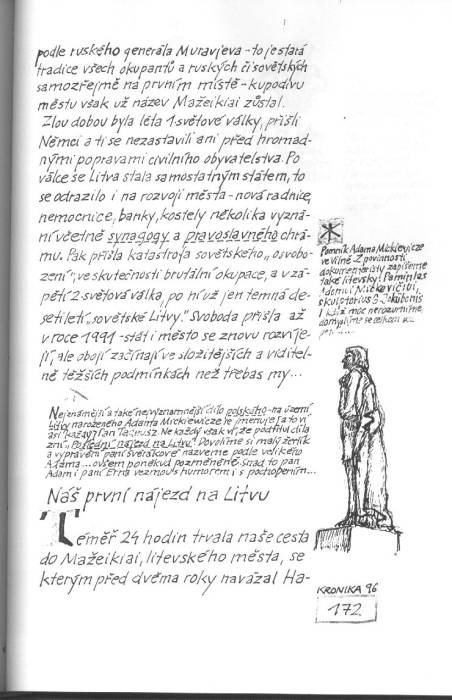 podle ruského generála Muravjeva - to je stará
tradice všech okupantů a ruských či sovětských
samozřejmě na prvním místě - kupodivu
městu však už název Mažeikiai zůstal.
Zlou dobou byla léta 1. světové války, přišli
Němci a ti se nezastavili ani před hromad-
nými popravami civilního obyvatelstva. Po
válce se Litva stala samostatným státem, to
se odrazilo i na rozvoji města - nová radnice,
nemocnice, banky, kostely několika vyzná-
ní včetně synagogy a pravoslavného chrá-
mu. Pak přišla katastrofa sovětského „osvobo-
zení", ve skutečnosti brutální okupace, a v zá-
pětí 2. světová válka, po ní už jen temná de-
setiletí „sovětské Litvy." Svoboda přišla až
v roce 1991 - stát i město se znovu rozvíje-
jí, ale obojí začínají ve složitějších a viditel-
ně těžších podmínkách než třebas my...
Pomník Adama Mickiewicze
ve Vilně. Z povinnosti
dokumentaristy zapišeme
také litevsky: Paminklas
Adamui Mickevičiui,
skulptorius G. Jokubonis
I když moc nerozumíme,
domyslíme se celkem
Nejznámější a také nejvýznamnější dílo polského - na území
Litvy narozeného Adama Mickiewicze se jmenuje (a to ví
asi každý) Pan Tadeusz. Ne každý však ví, že podtitul díla
zní „Poslední nájezd na Litvu". Dovolíme si malý žertík
a vyprávění paní Šverákové nazveme podle velikého
Adama... ovšem poněkud pozměněně. Snad to pan
Adam i paní Erna vezmou s humorem i s pochopením...
Náš první nájezd na Litvu
Téměř 24 hodin trvala naše cesta
do Mažeikiai, litevského města, se
kterým před dvěma roky navázal Ha-
KRONIKA 96
172